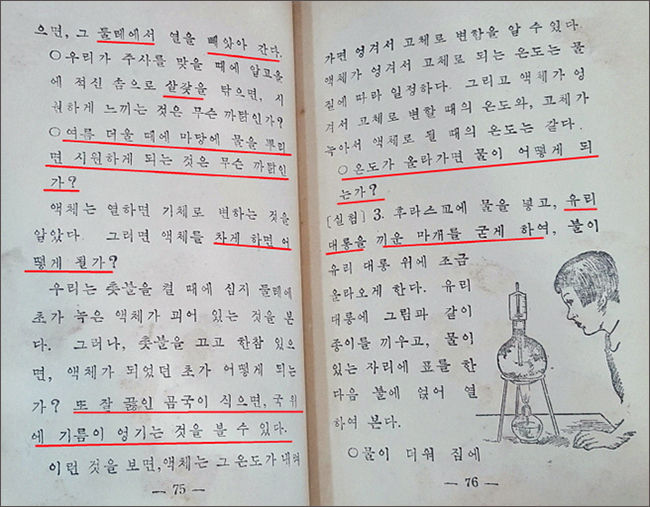 으면, 그 둘레에서 열을 빼앗아 간다.
○우리가 주사를 맞을 때에 알고올
에 적신 솜으로 살갗을 닦으면, 시
원하게 느끼는 것은 무슨 까닭인가?
○여름 더울 때에 마당에 물을 뿌리
면 시원하게 되는 것은 무슨 까닭인
가?
액체는 열하면 기체로 변하는 것을
알았다. 그러면 액체를 차게 하면 어
떻게 될가?
우리는 촛불을 켤 때에 심지 둘레에
초가 녹은 액체가 괴어 있는 것을 본
다. 그러나, 촛불을 끄고 한참 있으
면, 액체가 되었던 초가 어떻게 되는
가? 또 잘 끓인 곰국이 식으면, 국 위
에 기름이 엉기는 것을 볼 수 있다.
이런 것을 보면, 액체는 그 온도가 내려
— 75 —
가면 엉겨서 고체로 변함을 알 수 있다.
액체가 엉겨서 고체로 되는 온도는 물
질에 따라 일정하다. 그리고 액체가 엉
겨서 고체로 변할 때의 온도와, 고체가
녹아서 액체로 될 때의 온도는 같다.
○온도가 올라가면 물이 어떻게 되
는가?
[실험] 3. 후라스코에 물을 붛고, 유리
대롱을 끼운 마개를 굳게 하여, 물이
유리 대롱 위에 조금
올라오게 한다. 유리
대롱에 그림과 같이
종이를 끼우고, 물이
있는 자리에 표를 한
다음 불에 얹어 열
하여 본다.
○물이 더워 짐에
— 76 —